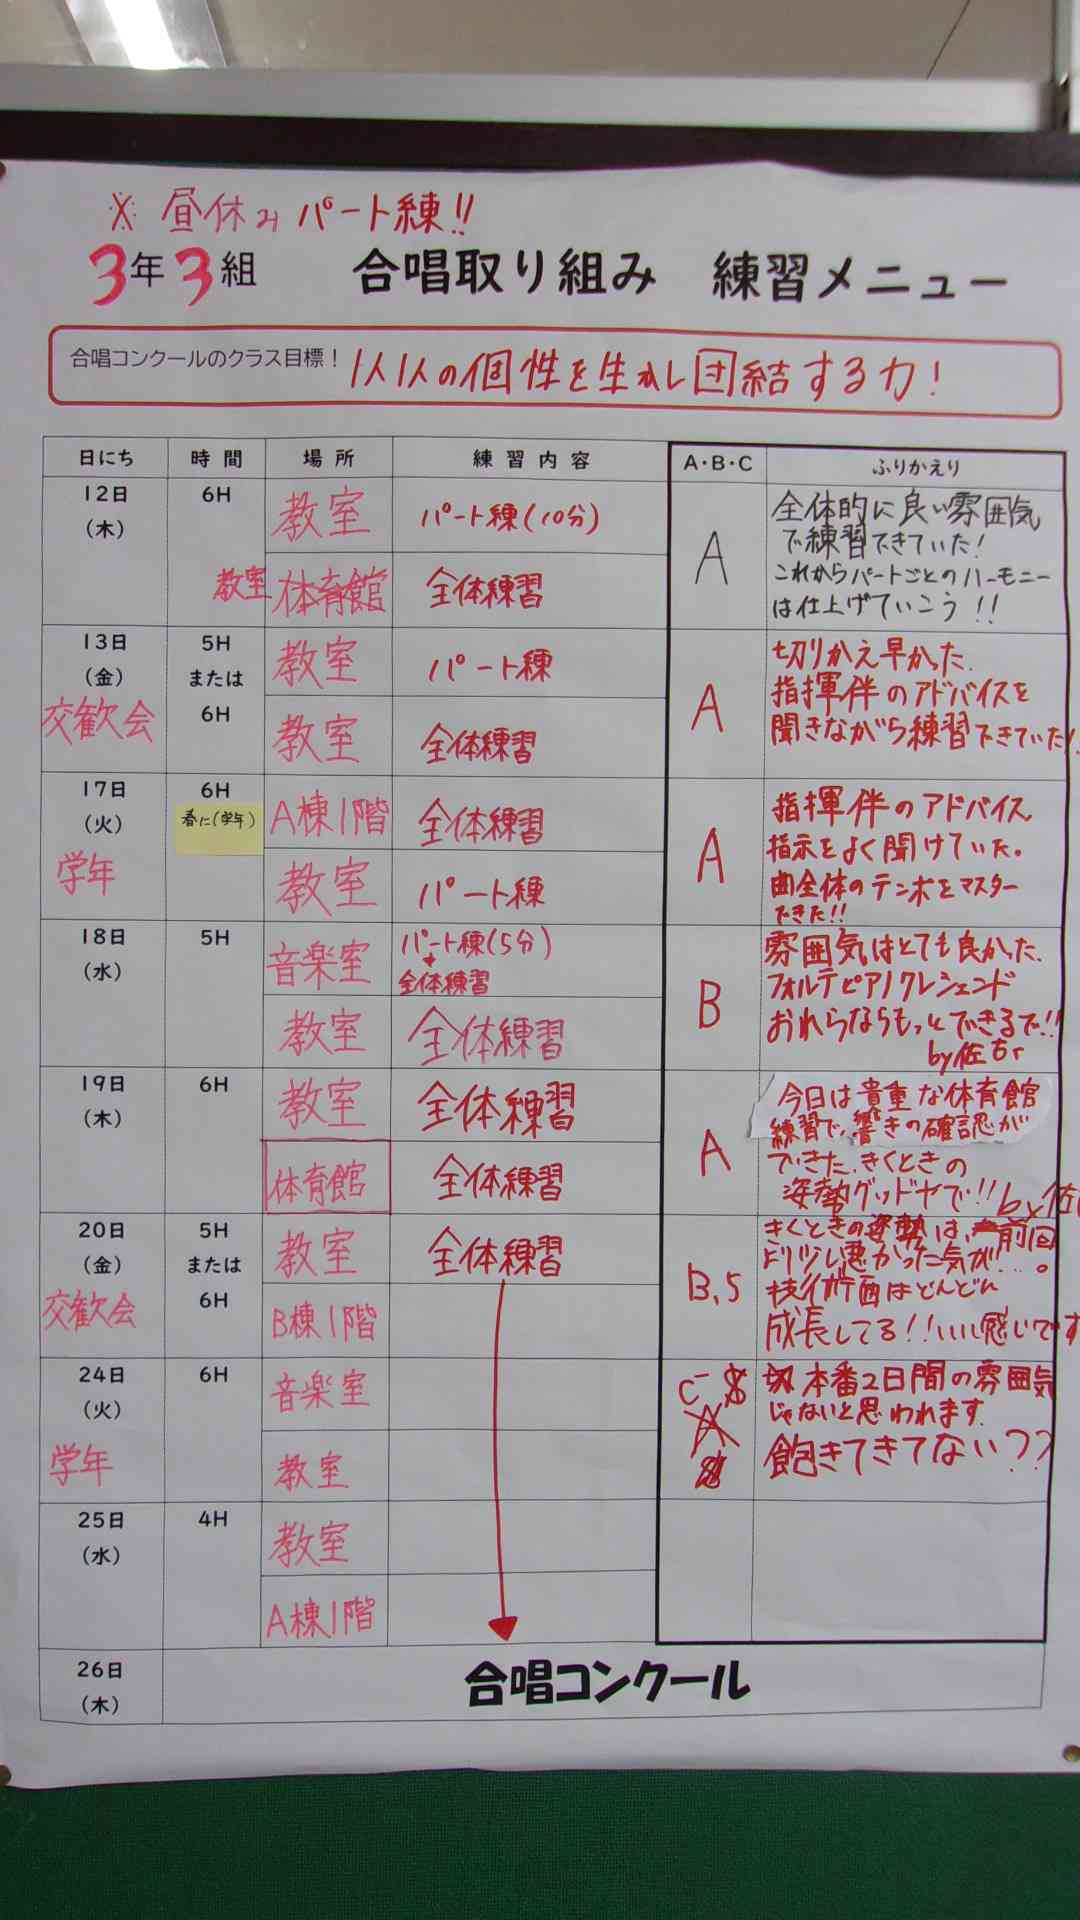 ※ 昼休み パート練!!
3年3組 合唱取り組み 練習メニュー
合唱コンクールのクラス目標! 1人1人の個性を生かし団結する力!
日にち 時間 場所 練習内容 A・B・C ふりかえり
12日
(木)
6H
教室
パート練(10分)
教室 体育館
全体練習
A
全体的に良い雰囲気
で練習できていた!
これからパートごとのハーモニー
は仕上げていこう!!
13日
(金)
交歓会
5H
または
6H
教室
パート練
教室
全体練習
A
切りかえ早かった.
指揮伴のアドバイスを
聞きながら練習できていた!
17日
(火)
学年
6H
春に(学年)
A棟1階
全体練習
教室
パート練
A
指揮伴のアドバイス,
指示をよく聞けていた。
曲全体のテンポをマスター
できた!!
18日
(水)
5H
音楽室
パート練(5分)
全体練習
教室
全体練習
B
雰囲気はとても良かった.
フォルテピアノクレシェンド
おれらならもっとできるで!!
by佐
19日
(木)
6H
教室
全体練習
体育館
全体練習
A
今日は貴重な体育館
練習で、響きの確認が
できた.きくときの
姿勢グッドヤで!! by佐
20日
(金)
交歓会
5H
または
6H
教室
全体練習
B棟1階
B,5
きくときの姿勢は、前回
より少し悪かった気が...。
はどんどん
成長してる!!いい感じです
24日
(火)
学年
6H
音楽室
教室
C-
本番2日間の雰囲気
じゃないと思われます.
飽きてきてない??
25日
(水)
4H
教室
A棟1階
26日
(木)
合唱コンクール